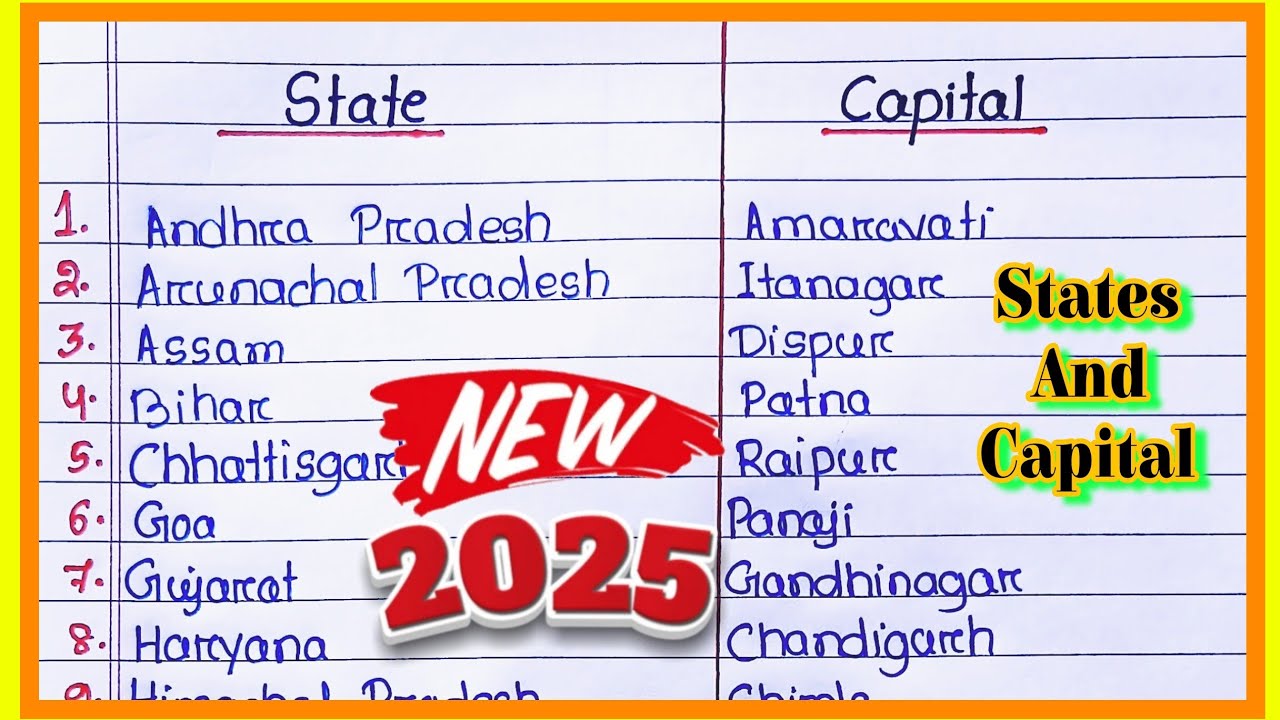 State Capital
1. Andhra Pradesh Amaravati
2. Arunachal Pradesh Itanagar
3. Assam Dispur
4. Bihar Patna
5. Chhattisgarh Raipur
6. Goa Panaji
7. Gujarat Gandhinagar
8. Haryana Chandigarh
9. Himachal Pradesh Shimla
NEW
2025
States
And
Capital